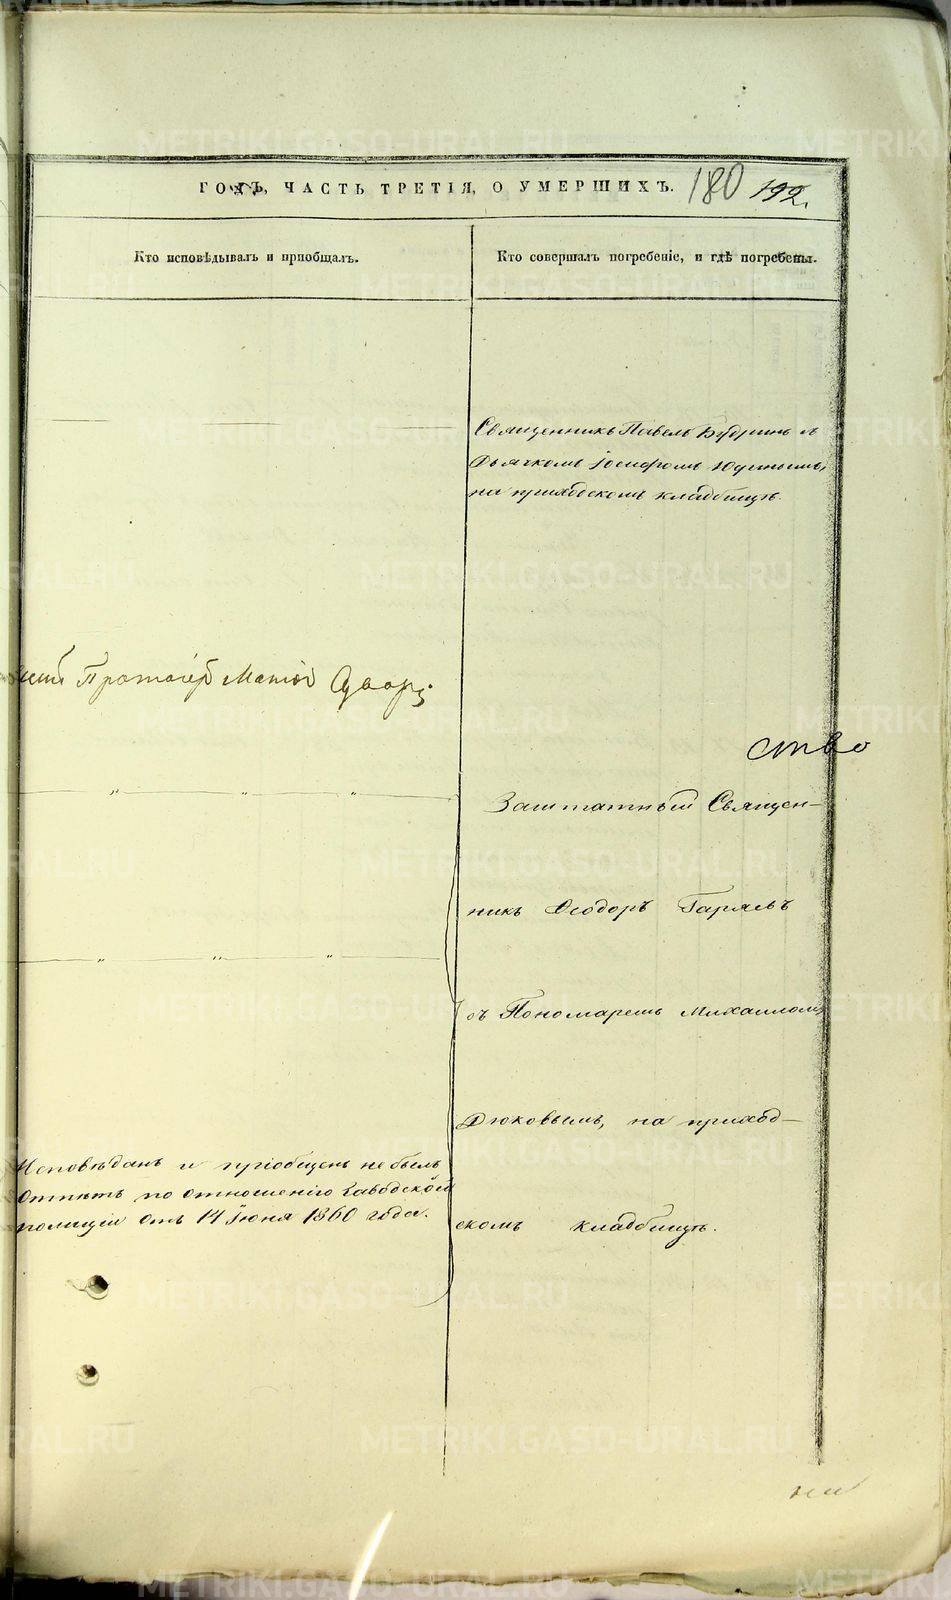 ГОДЪ, ЧАСТЬ ТРЕТІЯ, О УМЕРШИХЪ. 180 192.
Кто исповѣдывалъ и пріобщалъ.
Кто совершалъ погребеніе, и гдѣ погребены.
Священникъ Павелъ Будринъ съ
Дьячкомъ Іосифомъ Юдинымъ,
на приходскомъ кладбищѣ.
Протоіерей
ство
Заштатный Священ-
никъ Ѳеодоръ Гаряевъ
съ Пономаремъ Михаиломъ
Дюковымъ, на приход-
скомъ кладбищѣ.
Исповѣданъ и пріобщенъ не былъ
Отпѣтъ по отношенію Заводской
полиціи отъ 14 Іюня 1860 года.
METRIKI.GASO-URAL.RU